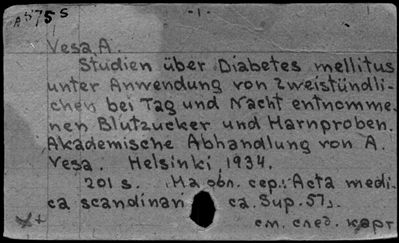 A 575 S
- 1 -
Vesa, A.
Studien über Diabetes mellitus
unter Anwendung von Zweistündli-
chen bei Tag und Nacht entnomme-
nen Blutzucker und Harnproben.
Akademische Abhandlung von A.
Vesa. Helsinki, 1934.
201 s. На обл. сер.: Acta medi-
ca scandinavi ca. Sup. 57.
см. след. карт